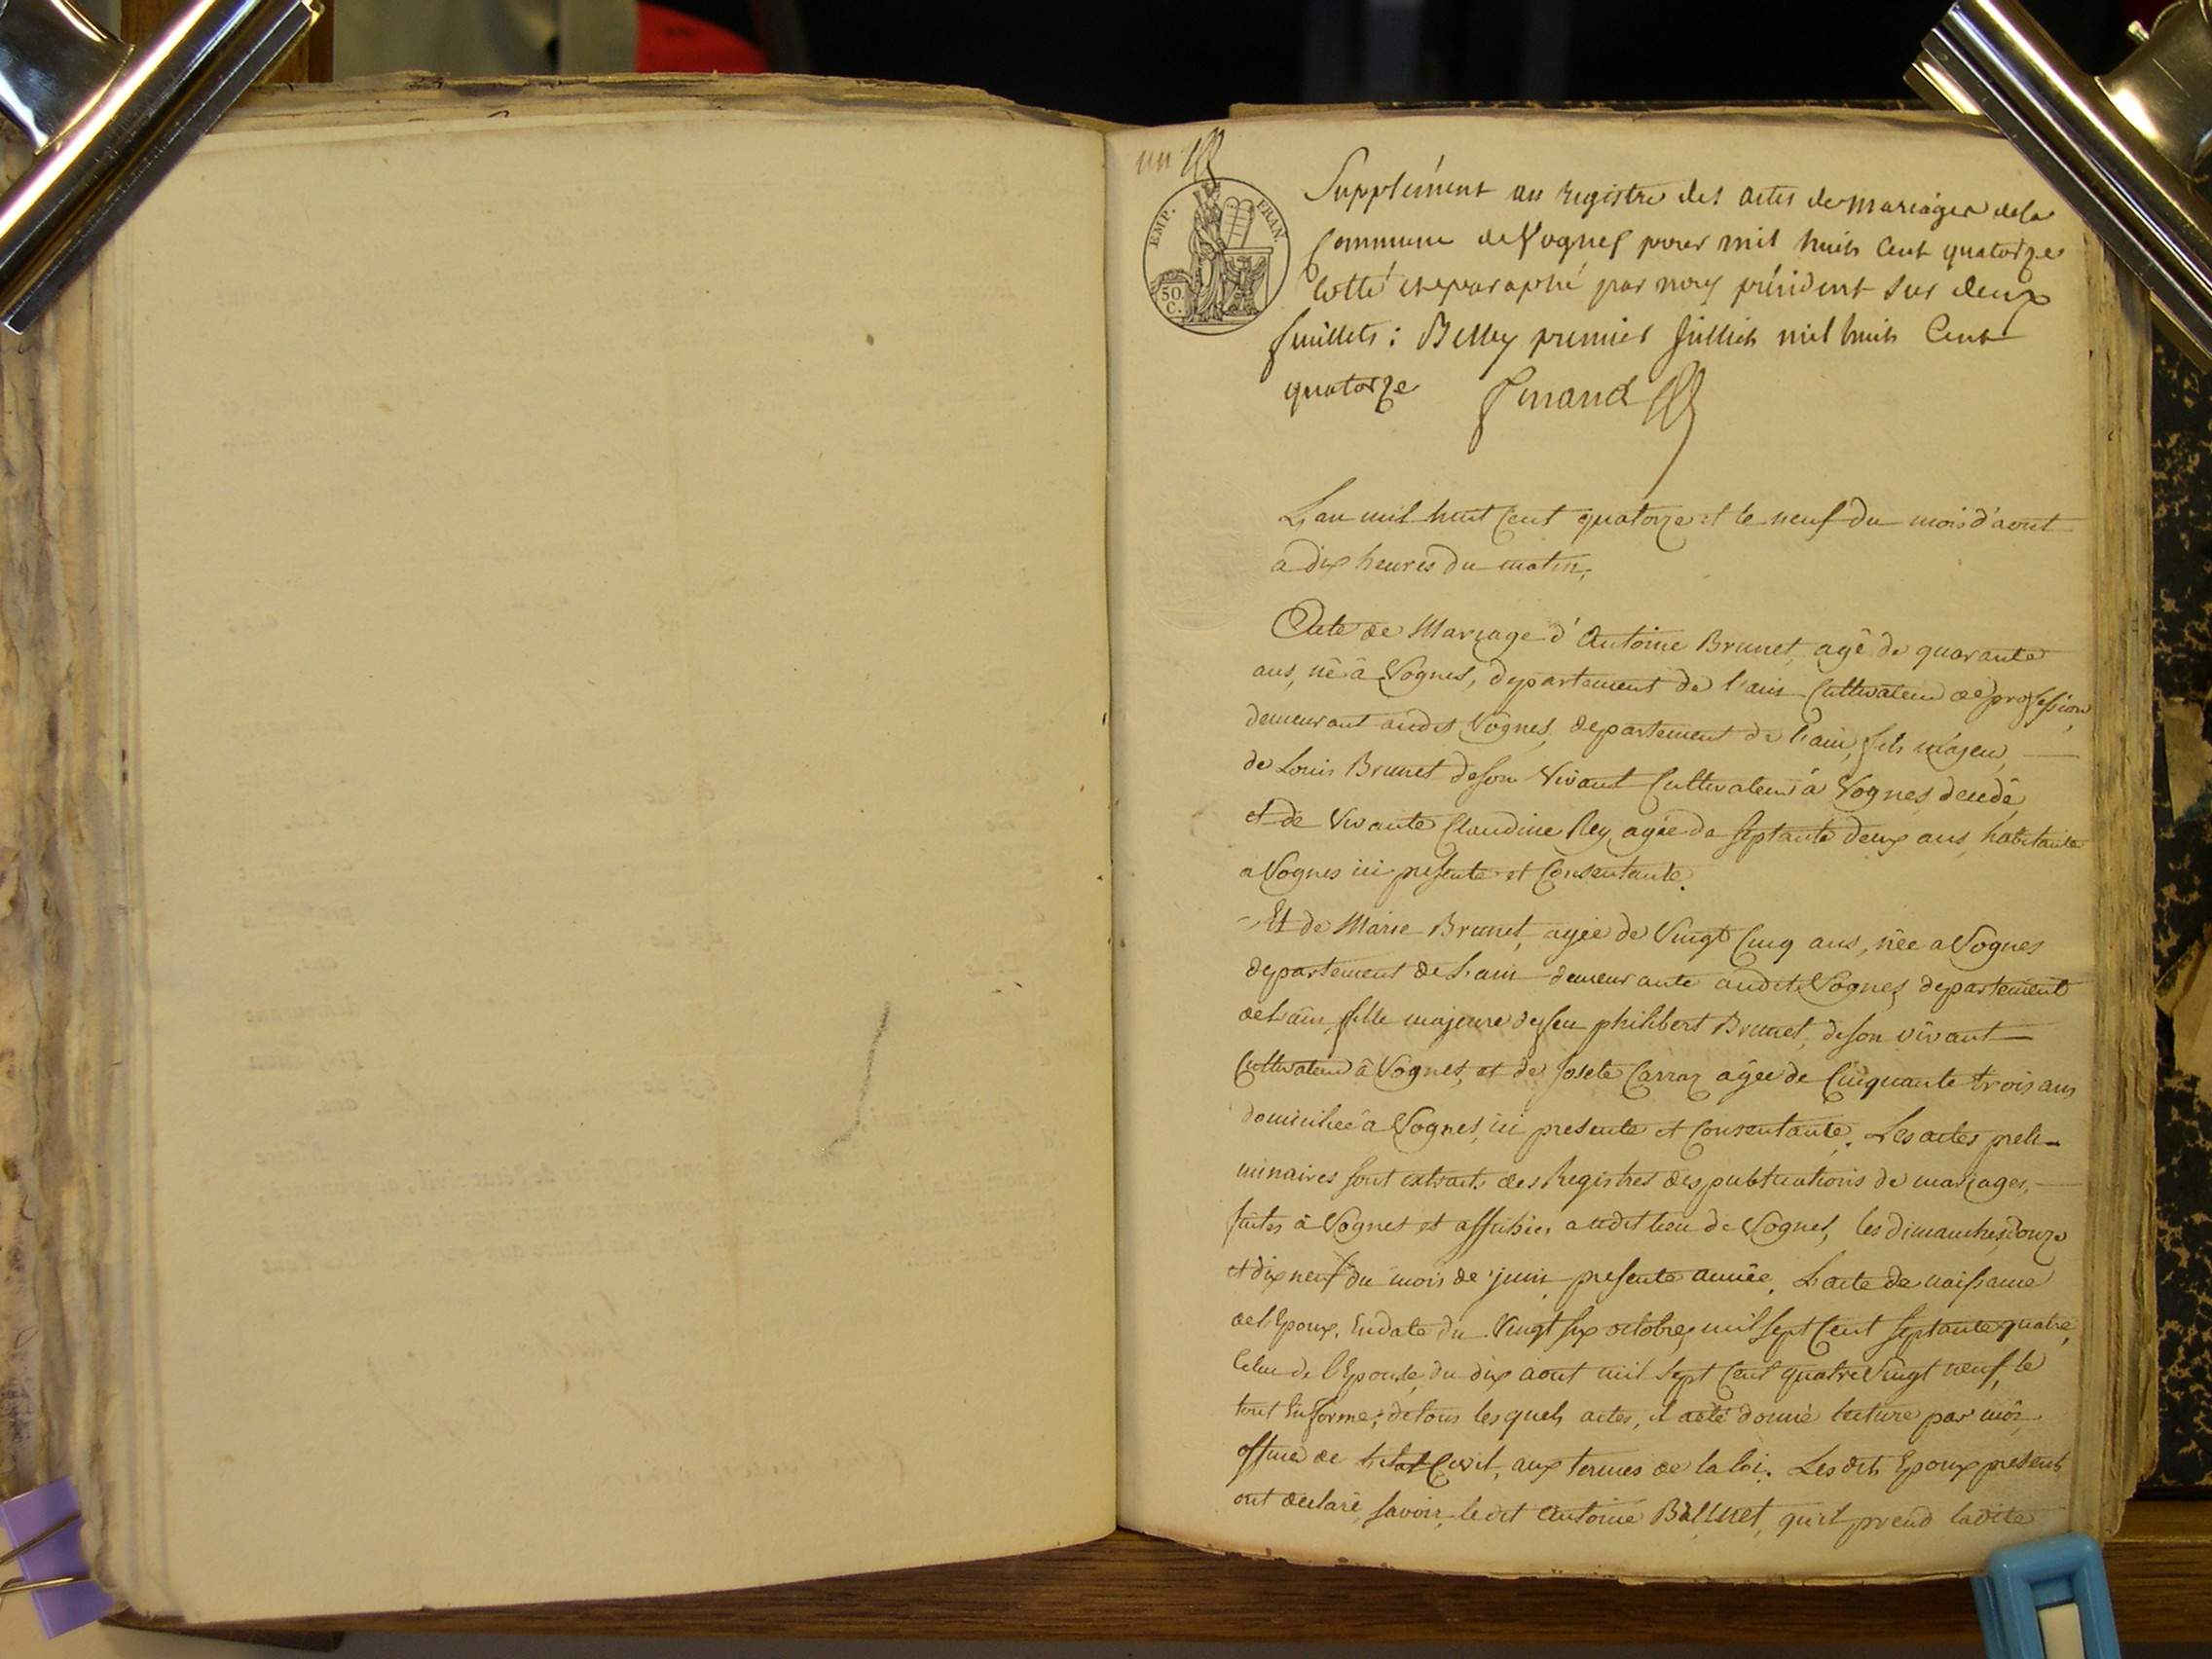 un
EMP. FRAN.
50 C.
Supplément au registre des actes de mariages de la
Commune de Vognes pour mil huit Cent quatorze
Cotté et paraphé par nous président sur deux
feuillets : Belley premier Juillet mil huit Cent
quatorze
L'an mil huit Cent quatorze et le neuf du mois d'aout
a dix heures du matin,
Acte de Mariage d'Antoine Brunet, agé de quarante
ans, né à Vognes, departement de l'ain Cultivateur de profession,
demeurant audit Vognes, departement de l'ain, fils majeur,
de Louis Brunet de son Vivant Cultivateur à Vognes decedé,
et de Vivante Claudine Rey agée de septante deux ans, habitante
a Vognes ici presente et Consentante.
- Et de Marie Brunet, agée de Vingt Cinq ans, née a Vognes
departement de l'ain demeurante audit Vognes departement
de l'ain, fille majeure de feu philibert Brunet, de son vivant
Cultivateur à Vognes, et de Josete Carraz agée de Cinquante trois ans
domiciliée à Vognes, ici presente et Consentante. Les actes preli-
minaires sont extraits des Registres des publications de mariages,
faites à Vognes et affichées audit lieu de Vognes, les dimanches douze
et dix neuf du mois de juin presente année. L'acte de naissance
de l'Epoux, En date du Vingt six octobre, mil sept Cent septante quatre,
Celui de l'Epouse, du dix aout mil sept Cent quatre Vingt neuf, le
tout En forme; de tous lesquels actes, il a été donné lecture par moi,
officier de l'etat Civil, aux termes de la loi. Les dits Epoux presents
ont declaré, savoir, ledit Antoine Brunet, qu'il prend ladite